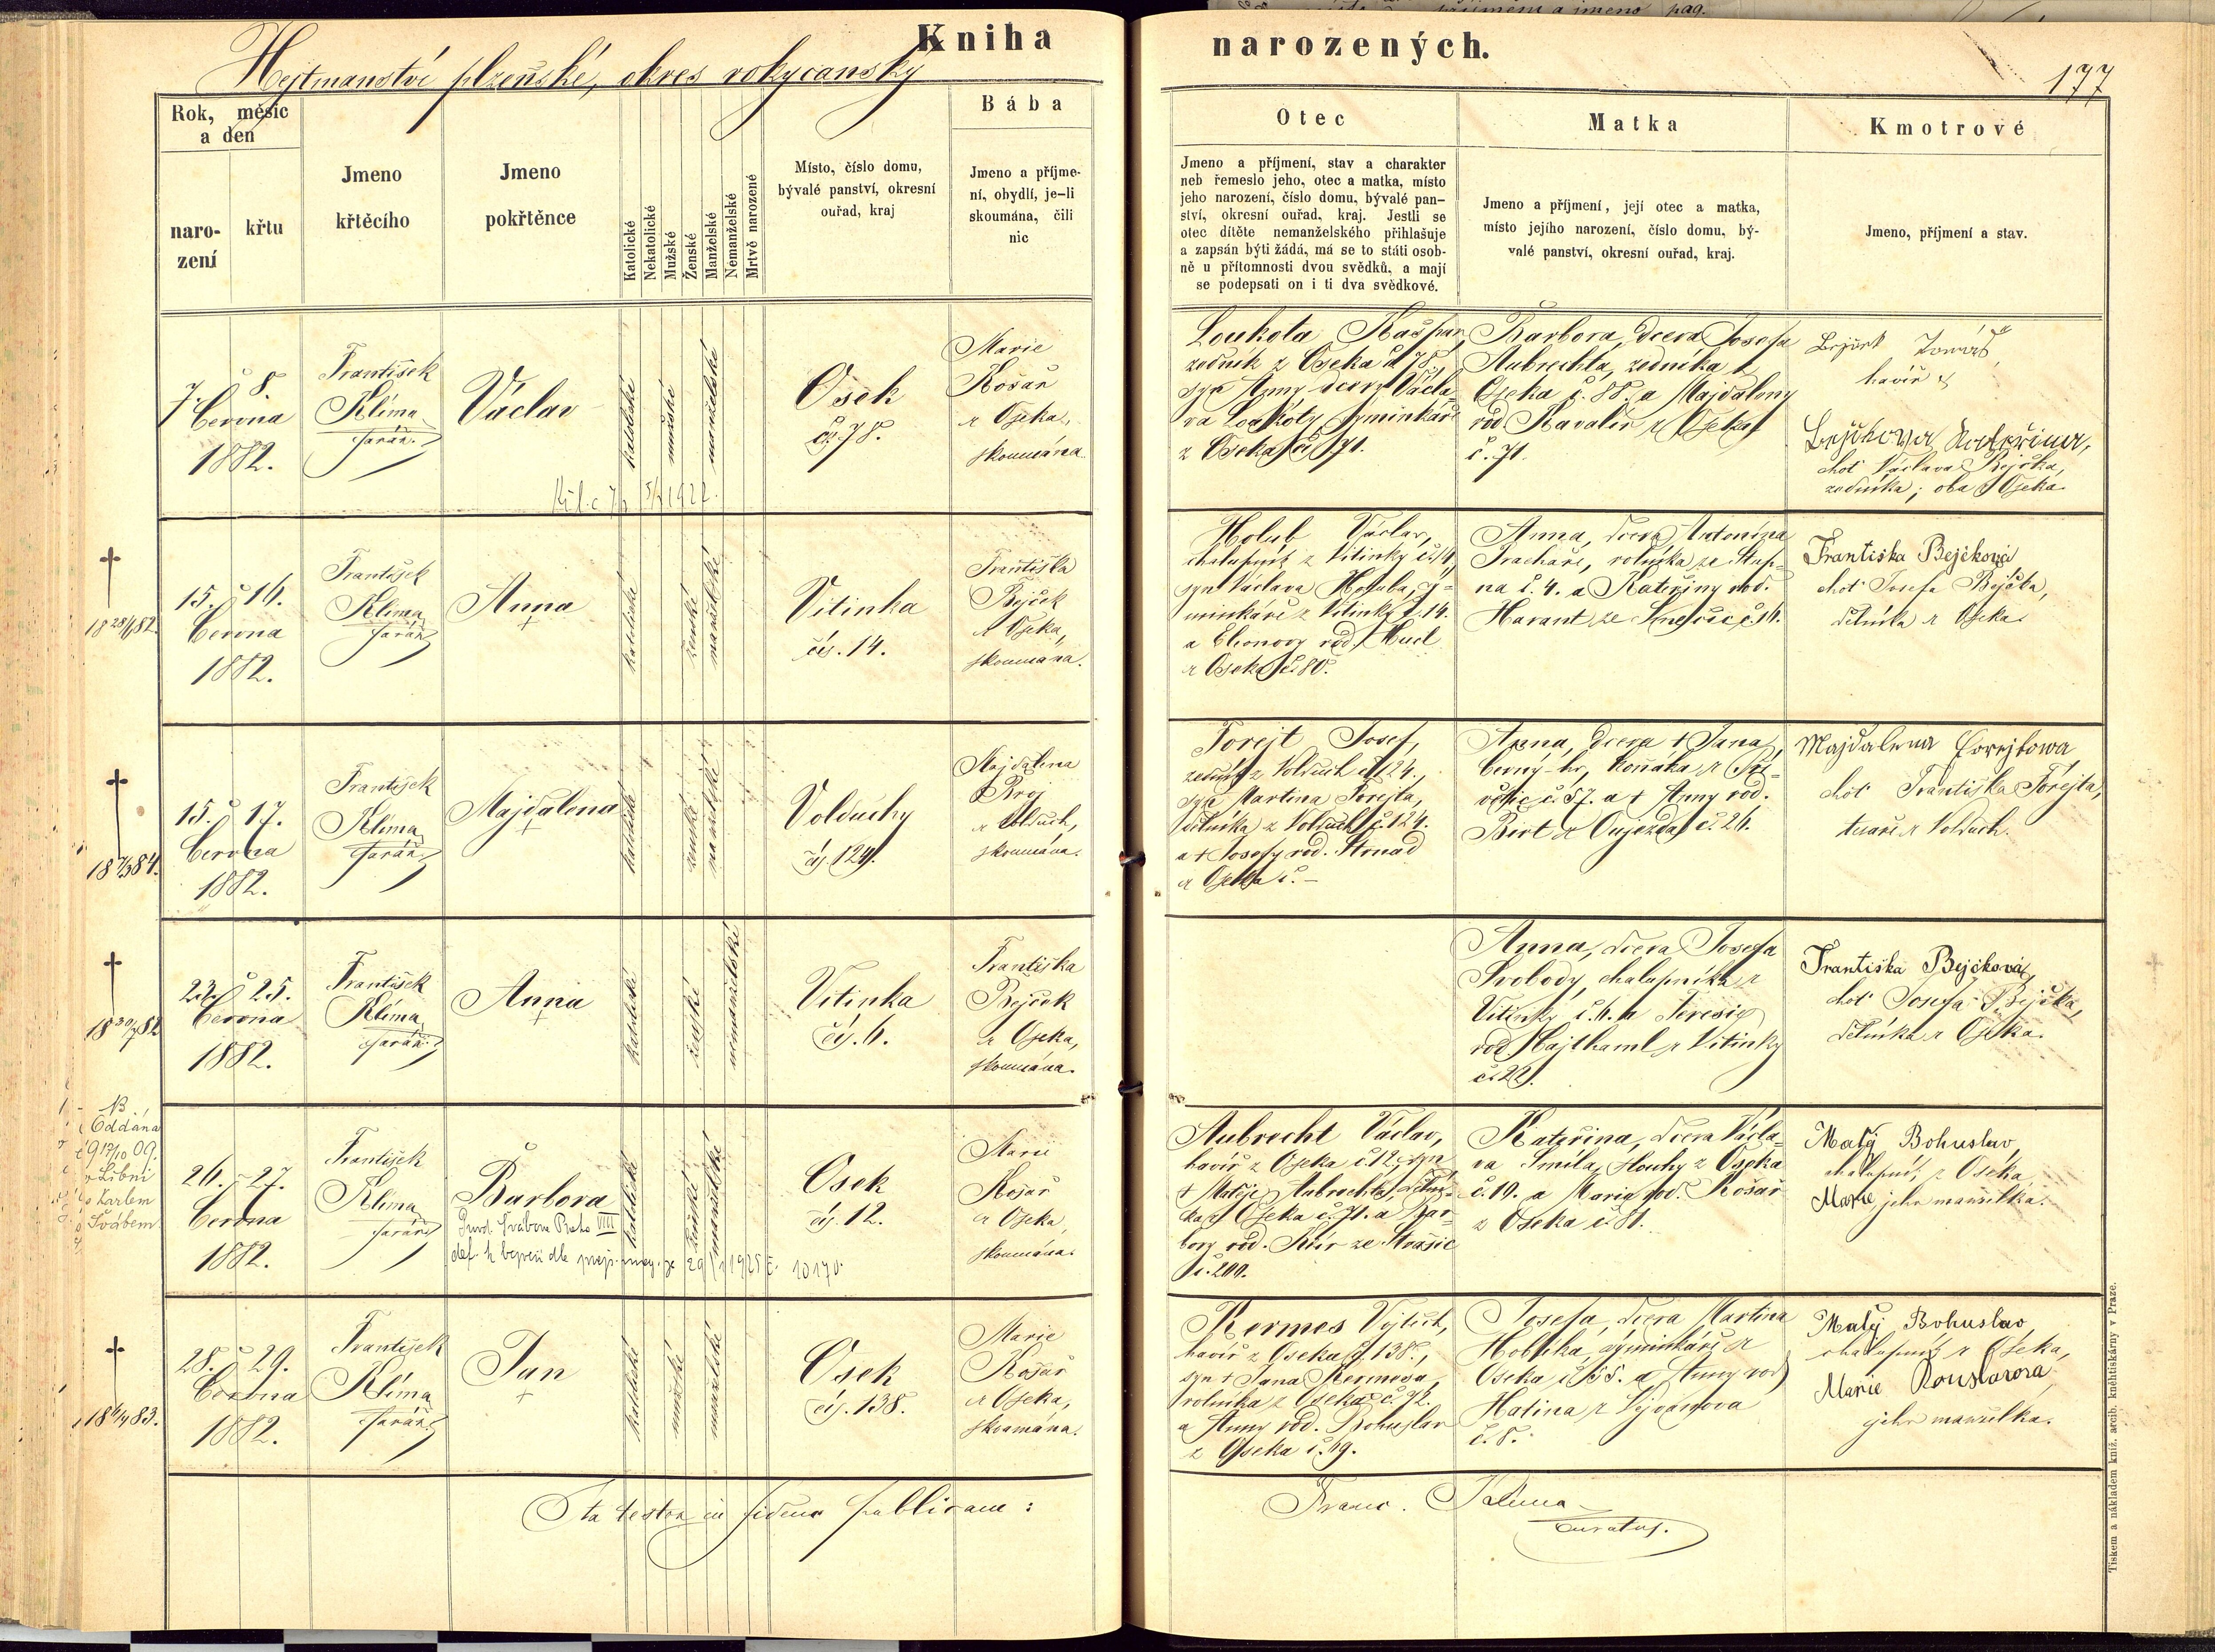 Kniha narozených.
Hejtmanství plzeňské, okres rokycanský
177
Rok, měsíc
a den
naro-
zení
křtu
Jmeno
křtěcího
Jmeno
pokřtěnce
Katolické
Nekatolické
Mužské
Ženské
Manželské
Nemanželské
Mrtvě narozené
Místo, číslo domu,
bývalé panství, okresní
ouřad, kraj
Bába
Jmeno a příjme-
ní, obydlí, je-li
skoumána, čili
nic
Otec
Jmeno a příjmení, stav a charakter
neb řemeslo jeho, otec a matka, místo
jeho narození, číslo domu, bývalé pan-
ství, okresní ouřad, kraj. Jestli se
otec dítěte nemanželského přihlašuje
a zapsán býti žádá, má se to státi osob-
ně u přítomnosti dvou svědků, a mají
se podepsati on i ti dva svědkové.
Matka
Jmeno a příjmení, její otec a matka,
místo jejího narození, číslo domu, bý-
valé panství, okresní ouřad, kraj.
Kmotrové
Jmeno, příjmení a stav.
7. 8.
června
1882.
František
Klíma
farář.
Václav
katolické
mužské
manželské
Osek
č. 78.
Marie
Košař
z Oseka,
skoumána.
Loukota Kašpar,
zedník z Oseka č. 78,
syn Anny, dcery Václa-
va Loukoty
z Oseka č. 71.
Barbora, dcera Josefa
Aubrechta, zedníka z
Oseka č. 88. a Majdaleny
rod. Kavalír z Oseka
č. 71.
Tomáš
havíř
Kateřina,
choť Václava Bejčka,
zedníka; oba z Oseka.
15. 16.
června
1882.
František
Klíma
farář
Anna
+
katolické
ženské
manželské
Vitinka
čís. 14.
Františka
Bejček
z Oseka,
skoumána.
Holub Václav,
chalupník z Vitinky č. 14,
syn Václava Holuba, vý-
minkáře z Vitinky č. 14.
a Eleonory rod. Hucl
z Oseka č. 80.
Anna, dcera Antonína
rolníka ze Stup-
na č. 4. a Kateřiny rod.
Harant ze
Františka Bejčková
choť Josefa Bejčka,
dělníka z Oseka.
15. 17.
června
1882.
František
Klíma
farář
Majdalena
+
katolické
ženské
manželské
Volduchy
čís. 124.
Majdalena
z Volduch,
skoumána.
Forejt Josef,
zedník z Volduch č. 124.,
syn Martina Forejta,
dělníka z Volduch č. 124.
a † Josefy rod. Strnad
z Oseka č. –
Anna, dcera † Jana
z
č. 57. a † Anny rod.
z Oujezda č. 26.
Majdalena Forejtowa
choť Františka Forejta,
tesaře z Volduch.
23. 25.
června
1882.
František
Klíma
farář
Anna
+
katolické
ženské
nemanželské
Vitinka
čís. 6.
Františka
Bejček
z Oseka,
skoumána.
Anna, dcera Josefa
Svobody, chalupníka z
Vitinky č. 6. a Terezie
rod. Hajšhaml z Vitinky
č. 22.
Františka Bejčková,
choť Josefa Bejčka,
dělníka z Oseka.
NB
Oddána
19 17/10 09.
v Libni
s Karlem
Švábem
26. 27.
června
1882.
František
Klíma
farář
Barbora
Švábová Praha VIII
čís. 10170.
katolické
ženské
manželské
Osek
čís. 12.
Marie
Košař
z Oseka,
skoumána.
Aubrecht Václav,
havíř z Oseka č. 12, syn
† Matěje Aubrechta, dělní-
ka z Oseka č. 71. a Bar-
bory rod. ze Strašic
č. 200.
Kateřina, dcera Václa-
va Smíla, slouhy z Oseka
č. 19. a Marie rod. Košař
z Oseka č. 81.
Malý Bohuslav,
chalupník z Oseka,
Marie jeho manželka.
28. 29.
června
1882.
František
Klíma
farář
Jan
+
katolické
mužské
manželské
Osek
čís. 138.
Marie
Košař
z Oseka,
skoumána.
Kermes Vojtěch,
havíř z Oseka č. 138.,
syn † Jana Kermesa,
rolníka z Oseka č. 92.
a Anny rod. Bohuslav
z Oseka č. 19.
Josefa, dcera Martina
Hoblíka, výminkáře z
Oseka č. 55. a Anny rod.
Hatina z Vejvanova
č. 8.
Malý Bohuslav,
chalupník z Oseka,
Marie
jeho manželka.
Ita testor in fidem publicam:
Franc. Klima
curatus.
Tiskem a nákladem kníž. arcib. kněhtiskárny v Praze.